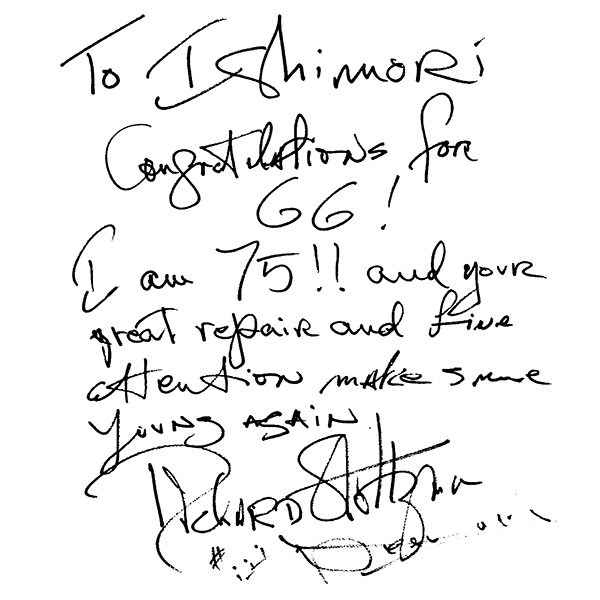 To Ishimori
Congratulations for
66!
I am 75!! and your
great repair and fine
attention makes me
young again
Richard Stoltzman